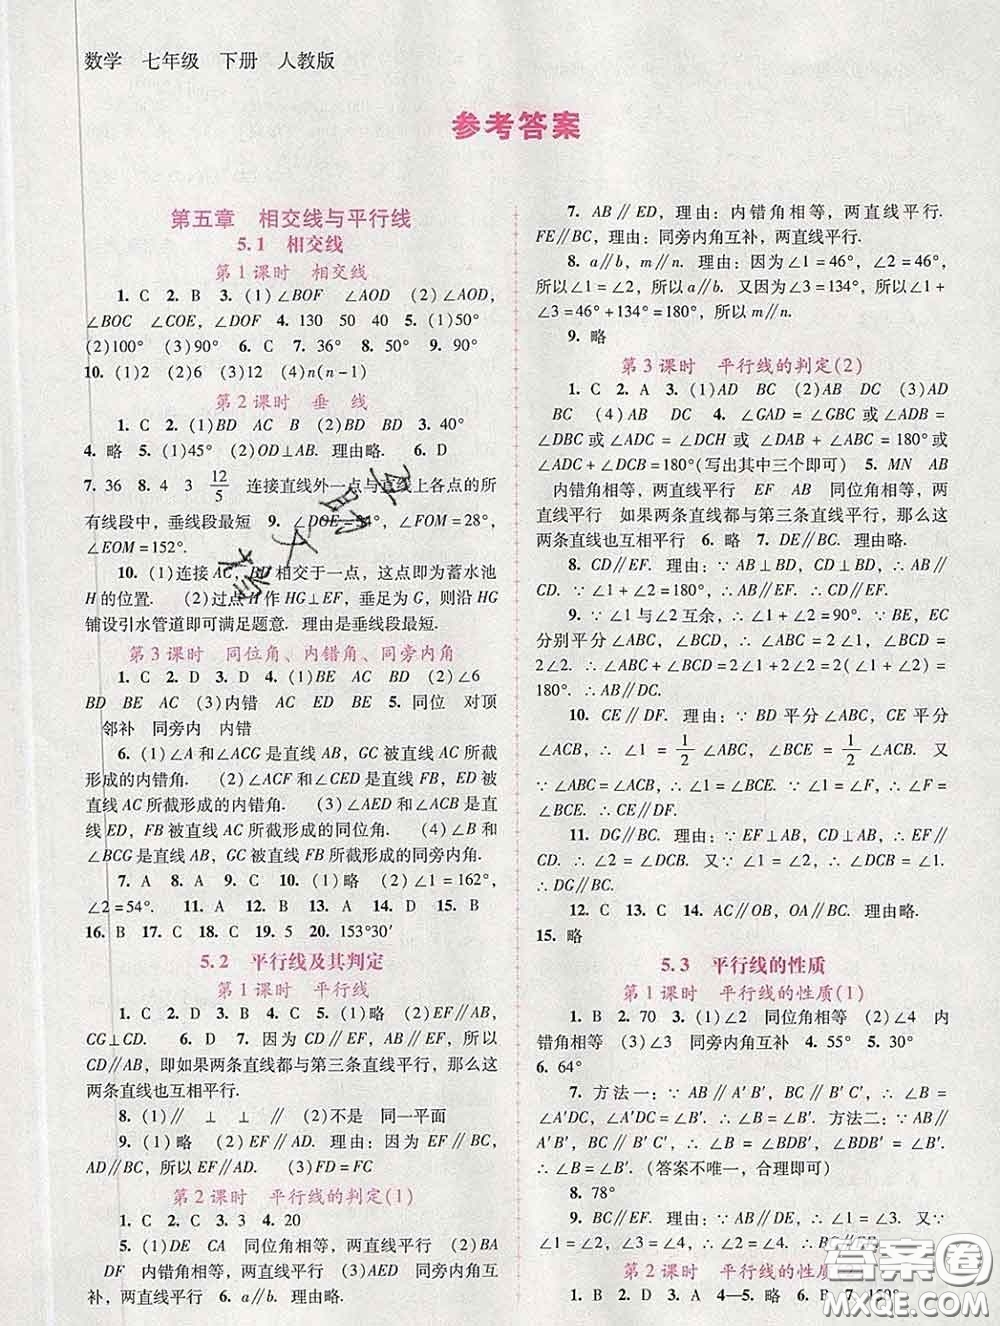 数学 七年级 下册 人教版
参考答案
第五章 相交线与平行线
5.1 相交线
第1课时 相交线
1. C 2. B 3. (1)∠BOF ∠AOD (2)∠AOD,
∠BOC ∠COE,∠DOF 4. 130 50 40 5. (1)50°
(2)100° (3)90° 6. C 7. 36° 8. 50° 9. 90°
10. (1)2 (2)6 (3)12 (4)n(n-1)
第2课时 垂 线
1. C 2. (1)BD AC B (2)BD BD 3. 40°
4. 略 5. (1)45° (2)OD⊥AB. 理由略. 6. D
7. 36 8. 4 3 12/5 连接直线外一点与直线上各点的所
有线段中，垂线段最短 9. ∠DOE=34°，∠FOM=28°，
∠EOM=152°.
10. (1)连接AC，BD相交于一点，这点即为蓄水池
H的位置. (2)过点H作HG⊥EF，垂足为G，则沿HG
铺设引水管道即可满足题意. 理由是垂线段最短.
第3课时 同位角、内错角、同旁内角
1. C 2. D 3. D 4. (1)BE AC BD (2)∠6
BD BE AC (3)内错 AC ED BE 5. 同位 对顶
邻补 同旁内 内错
6. (1)∠A和∠ACG是直线AB，GC被直线AC所截
形成的内错角. (2)∠ACF和∠CED是直线FB，ED被
直线AC所截形成的内错角. (3)∠AED和∠ACB是直
线ED，FB被直线AC所截形成的同位角. (4)∠B和
∠BCG是直线AB，GC被直线FB所截形成的同旁内角.
7. A 8. A 9. C 10. (1)略 (2)∠1=162°，
∠2=54°. 11. A 12. B 13. A 14. A 15. B
16. B 17. C 18. C 19. 5 20. 153°30′
5.2 平行线及其判定
第1课时 平行线
1. C 2. D 3. C 4. C 5. (1)略 (2)EF∥AB，
CG⊥CD. 6. D 7. 因为CD∥EF，AB∥EF，所以
CD∥AB，即如果两条直线都与第三条直线平行，那么这
两条直线也互相平行.
8. (1)∥ ⊥ ⊥ ∥ (2)不是 同一平面
9. (1)略 (2)EF∥AD. 理由：因为EF∥BC，
AD∥BC，所以EF∥AD. (3)FD=FC
第2课时 平行线的判定(1)
1. C 2. C 3. 3 4. 20
5. (1)DE CA 同位角相等，两直线平行 (2)BA
DF 内错角相等，两直线平行 (3)AED 同旁内角互
补，两直线平行 6. a∥b. 理由略.
7. AB∥ED，理由：内错角相等，两直线平行.
FE∥BC，理由：同旁内角互补，两直线平行.
8. a∥b，m∥n. 理由：因为∠1=46°，∠2=46°，
所以∠1=∠2，所以a∥b. 又因为∠3=134°，所以∠1+
∠3=46°+134°=180°，所以m∥n.
9. 略
第3课时 平行线的判定(2)
1. C 2. A 3. (1)AD BC (2)AB DC (3)AD
BC (4)AB DC 4. ∠GAD=∠GBC或∠ADB=
∠DBC或∠ADC=∠DCH或∠DAB+∠ABC=180°或
∠ADC+∠BCD=180°(写出其中三个即可) 5. MN AB
内错角相等，两直线平行 EF AB 同位角相等，两
直线平行 如果两条直线都与第三条直线平行，那么这
两条直线也互相平行 6. 略 7. DE∥BC. 理由略.
8. CD∥EF. 理由：∵AB⊥BD，CD⊥BD，∴AB∥
CD. ∵∠1+∠2=180°，∴AB∥EF. ∴CD∥EF.
9. ∵∠1与∠2互余，∴∠1+∠2=90°. ∵BE，EC
分别平分∠ABC，∠BCD，∴∠ABC=2∠1，∠BCD=
2∠2. ∴∠ABC+∠BCD=2∠1+2∠2=2(∠1+∠2)=
180°. ∴AB∥DC.
10. CE∥DF. 理由：∵BD平分∠ABC，CE平分
∠ACB，∴∠1=1/2∠ABC，∠BCE=1/2∠ACB. 又
∵∠ABC=∠ACB，∴∠1=∠BCE. ∵∠1=∠F，∴∠F=
∠BCE. ∴CE∥DF.
11. DG∥BC. 理由：∵EF⊥AB，CD⊥AB，∴EF∥
CD. ∴∠2=∠DCB. 又∵∠1=∠2，∴∠DCB=∠1.
∴DG∥BC.
12. C 13. C 14. AC∥OB，OA∥BC. 理由略.
15. 略
5.3 平行线的性质
第1课时 平行线的性质(1)
1. B 2. 70 3. (1)∠2 同位角相等 (2)∠4 内
错角相等 (3)∠3 同旁内角互补 4. 55° 5. 30°
6. 64°
7. 方法一：∵AB∥A′B′，BC∥B′C′，∴∠B=
∠A′DC，∠A′DC=∠B′. ∴∠B=∠B′. 方法二：∵AB∥
A′B′，BC∥B′C′，∴∠B=∠BDB′，∠BDB′=∠B′.
∴∠B=∠B′. (答案不唯一，合理即可)
8. 78°
9. BC∥EF. 理由：∵AB∥DE，∴∠1=∠3. 又∵
∠1=∠2，∠3=∠4，∴∠2=∠4. ∴BC∥EF.
第2课时 平行线的性质
1. B 2. D 3. D 4—5. 略 6. B 7.
答案圈
MXQE.COM